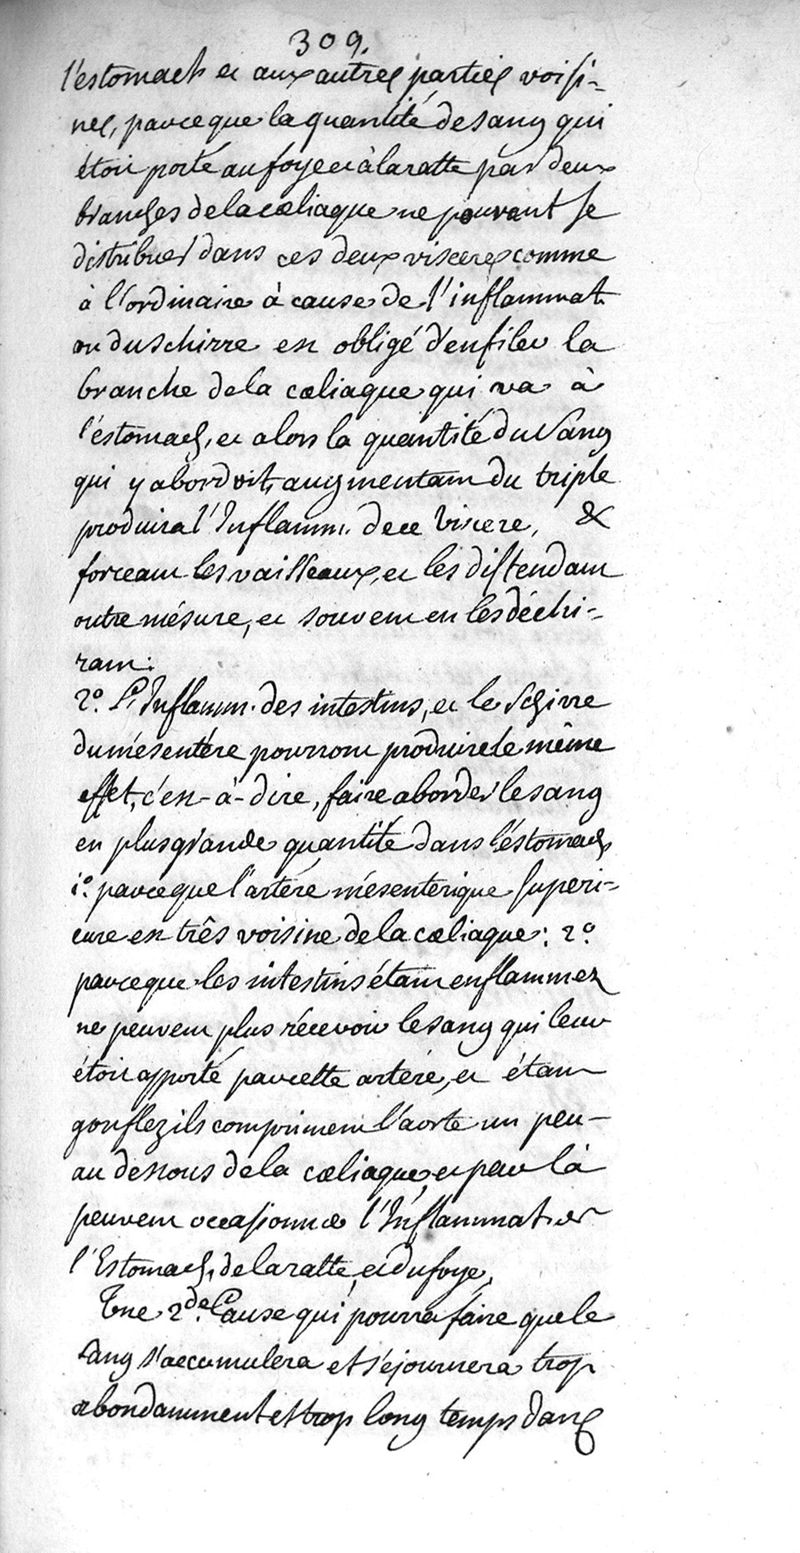 309.
l'estomach et aux autres parties voisi-
nes, parce que la quantité de sang qui
étoit porté au foye et à la ratte par deux
branches de la cœliaque ne pouvant se
distribuer dans ces deux visceres comme
à l'ordinaire à cause de l'inflammat.
ou du schirre est obligé d'enfiler la
branche de la cœliaque qui va à
l'éstomach, et alors la quantité du sang
qui y abordoit, augmentant du triple
produira l'Inflamm. de ce viscere, &
forceant les vaisseaux, et les distendant
outre mésure, et souvent en les déchi-
rant.
2.° L'Inflamm. des intestins, et le Schirre
du mésentére pourront produire le même
effet, c'est-à-dire, faire aborder le sang
en plus grande quantité dans l'éstomach
1.° parce que l'artére mésentérique superi-
eure est très voisine de la cœliaque: 2.°
parce que les intestins étant enflammez
ne peuvent plus récevoir le sang qui leur
étoit apporté par cette artére, et étant
gonflez ils compriment l'aorte un peu
au dessous de la cœliaque, et par là
peuvent occasionner l'Inflammat. de
l'Estomach, de la ratte, et du foye.
Une 2.de Cause qui pourra faire que le
sang s'accumulera et séjournera trop
abondamment et trop long temps dans